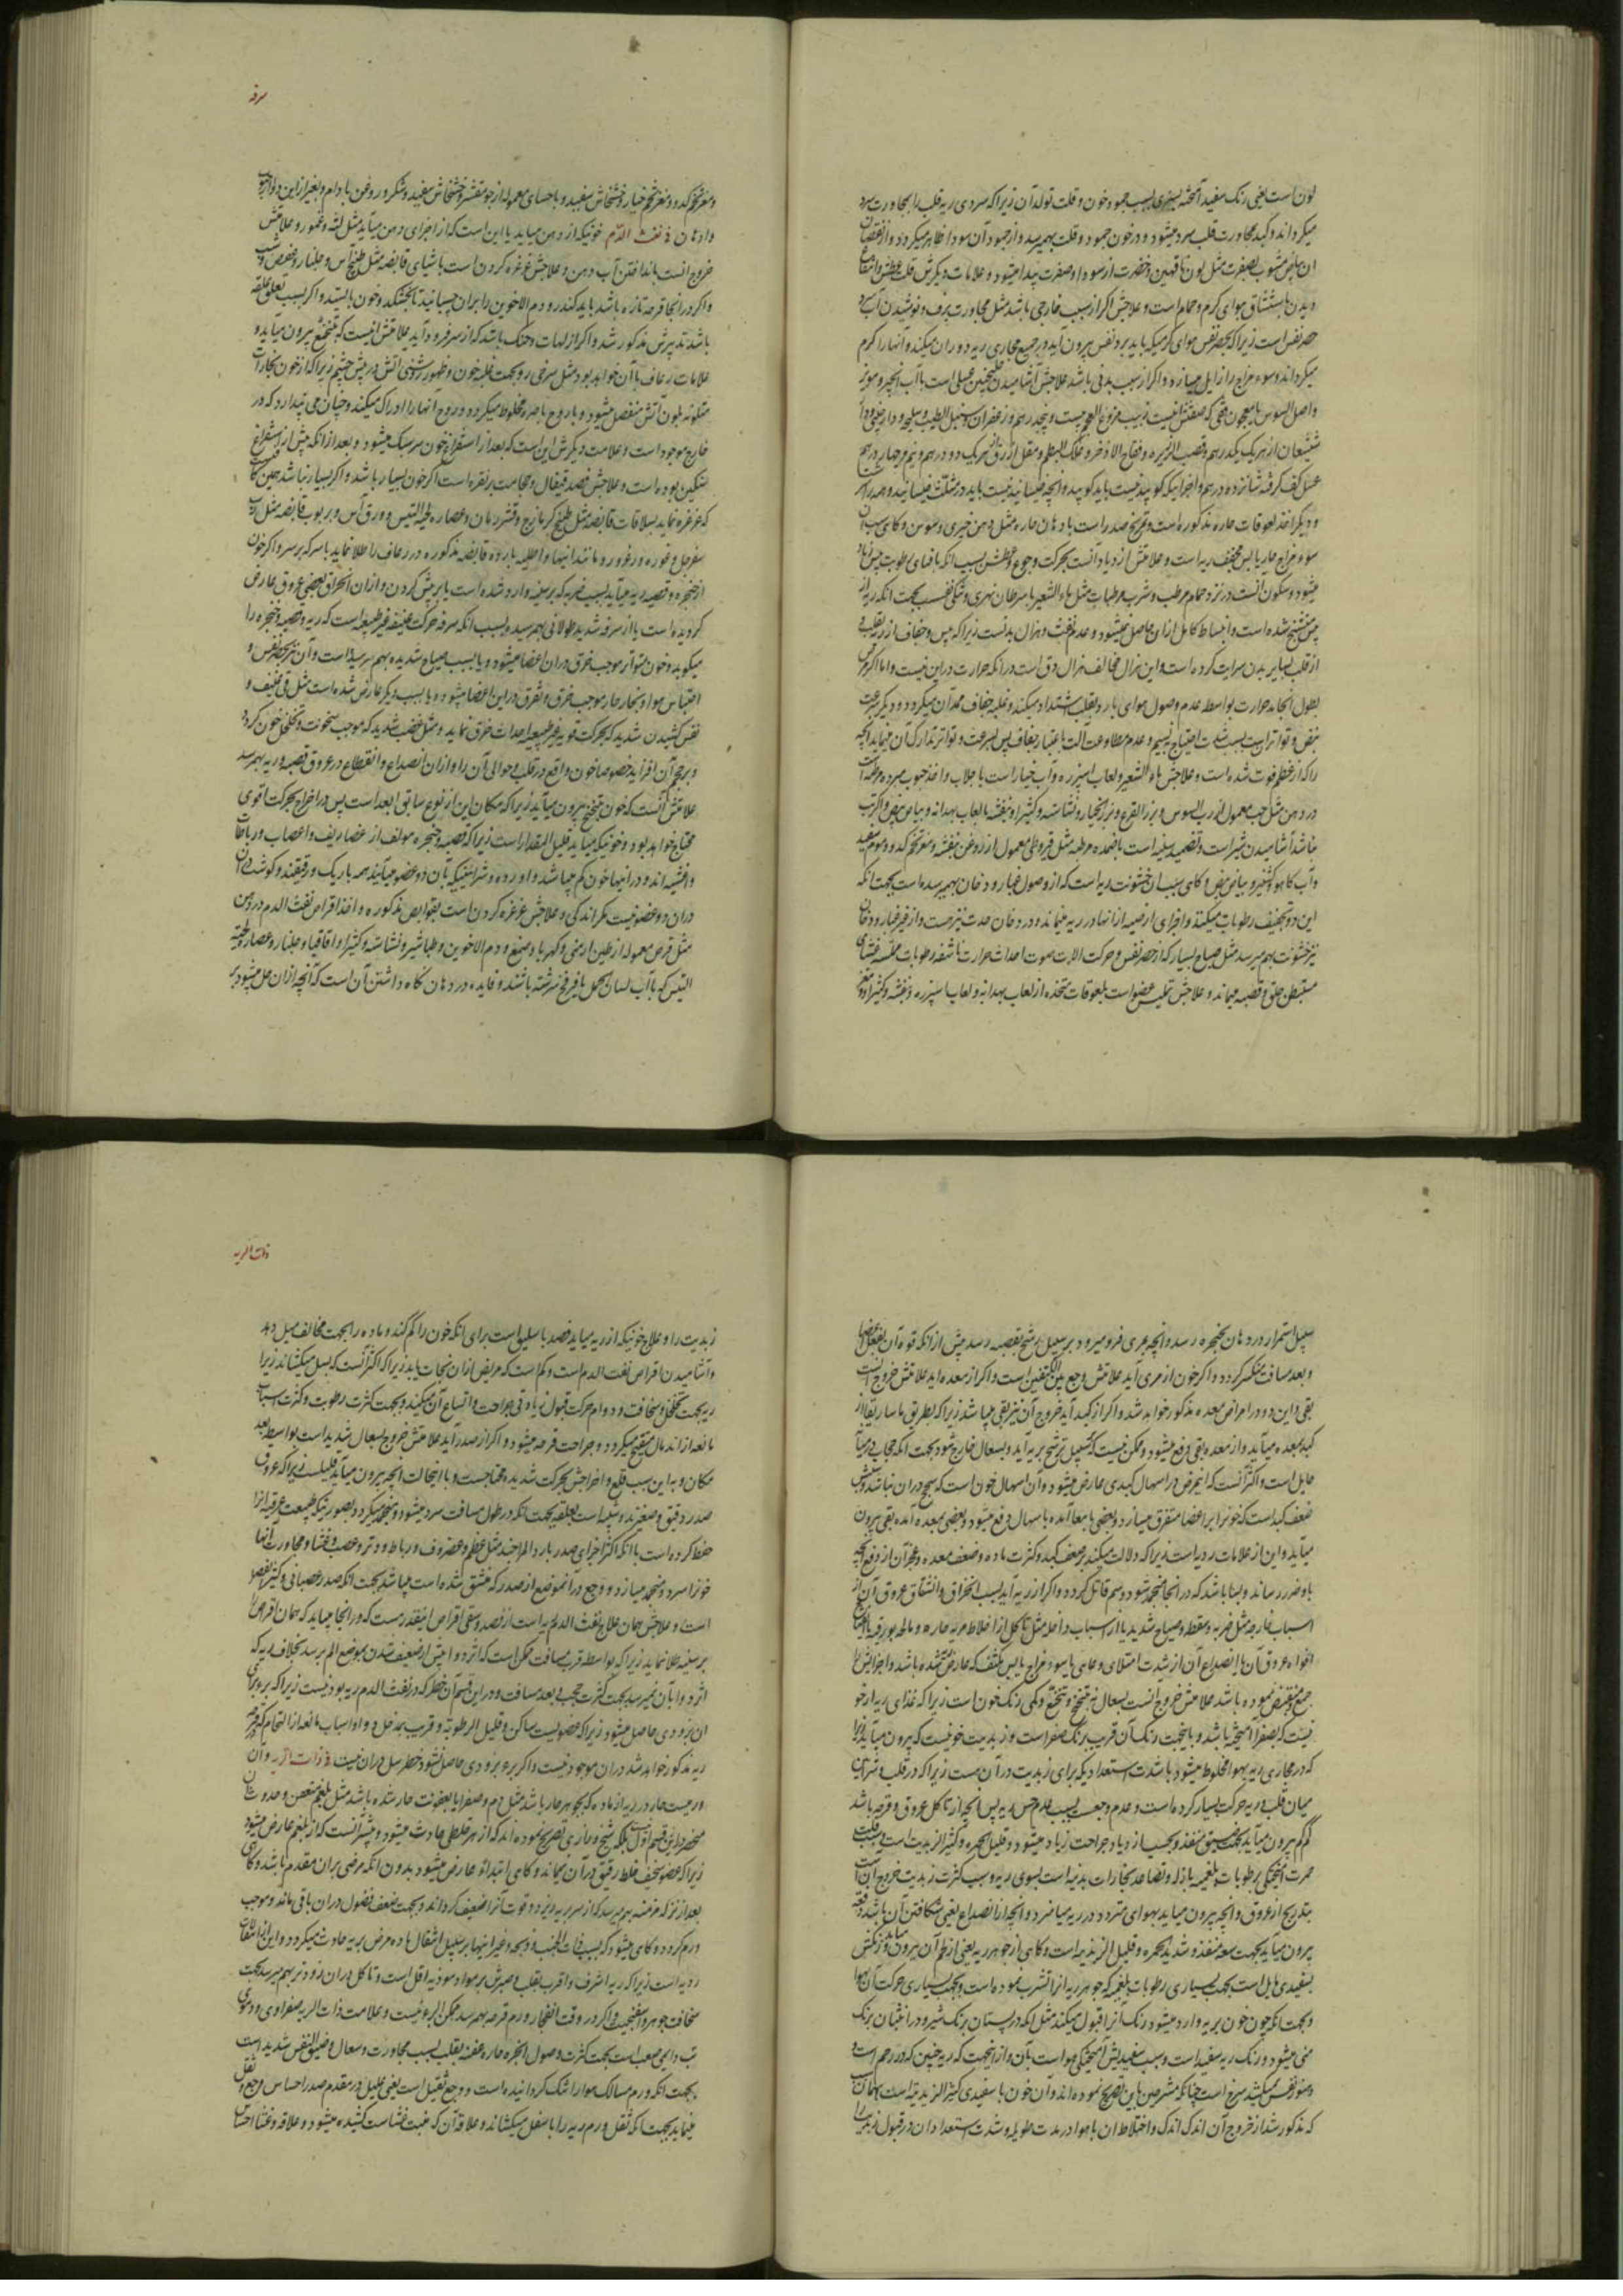 لون است یعنی رنک سفید آمیخته بسبزی بسبب جمود خون و قلت تولد آن زیرا که سردی ریه قلب را بمجاورت سرد
میکرداند و کبد بمجاورت قلب سرد میشود و در خون جمود و قلت بهم میرسد و از جمود آن سودا ظاهر میکردد و از نقصان
ان بیاض مشوب بصفرت مثل لون ناقهین و خضرت از سودا و صفرت پیدا میشود و علامات دیکرش قلت عطش و انتفاع
دیدن باستنشاق هوای کرم و حمام است و علاجش اکر از سبب خارجی باشد مثل مجاورت برف و نوشیدن آب سرد
حصر نفس است زیرا که بحصر نفس هوای کرم که باید برد نفس بیرون آید در جمیع مجاری ریه دوران میکند و آنها را کرم
میکرداند و سوء مزاج را زایل میسازد و اکر از سبب بدنی باشد علاجش آشامیدن سکنجبین عسلی است با آب انجیر و مویز
واصل السوس با معجون
عسل کف کرفته شانزده درهم و اجزا
و دیکر اخذ لعوقات حاره مذکوره است و تمریخ صدر است بادهان حاره مثل دهن خیری و سوسن و کاهی سبب آن
سوء مزاج حار یابس مجفف ریه است و علامتش ازدیاد آنست بحرکت و جوع و عطش بسبب انکه بافنای رطوبت یبس زیاد
میشود و سکون آنست در نزد حمام مرطب و شرب مرطبات مثل ماء الشعیر با سرطان نهری و تنکی نفس بجهت انکه ریه از
یبس متشنج شده است و انبساط کامل ازان حاصل نمیشود و عدم نفث و هزال بدنست زیرا که یبس و جفاف از ریه بقلب
از قلب بسایر بدن سرایت کرده است و این هزال مخالف هزال دق است در انکه حرارت دراین نیست و اما اکر مرض
بطول انجامد حرارت بواسطه عدم وصول هوای بارد بقلب اشتداد میکند و غلبه جفاف ممد آن میکردد و دیکر سرعت
نبض و تواتر است بسبب شدت احتیاج به نسیم و عدم مطاوعت آلت باعتبار جفاف پس بسرعت و تواتر تدارک آن مینماید انچه
را که از عظم فوت شده است و علاجش ماء الشعیر و لعاب اسپرزه و آب خیار است با جلاب و اخذ حبوب مبرده مرطبه است
در دهن مثل حب معمول از رب السوس و بزر القرع و بزر الخیار و نشاسته و کثیرا و بنفشه با لعاب بهدانه و بیاض بیض و اکر تب
نباشد آشامیدن شیر است و تضمید سینه است باضمده مرطبه مثل قیروطی معمول از روغن بنفشه و مغز تخم کدو و موم سفید
و آب کاهو و کشنیز و بیاض بیض و کاهی سبب ان خشونت ریه است که از وصول غبار و دخان بهم میرسد است بجهت انکه
این دو تجفیف رطوبات میکنند و اجزای ارضیه از انها در ریه میماند و در دخان حدت نیز هست و از غیر غبار و دخان
نیز خشونت بهم میرسد مثل صیاح بسیار که از حصر نفس و حرکت الات صوت احداث حرارت ناشفه رطوبات مملسه غشای
مستبطن حلق و قصبه مینماید و علاجش تملیس عضو است بلعوقات متخذه از لعاب بهدانه و لعاب اسپرزه و بنفشه و کثیرا و مغز
سرفه
و مغز تخم کدو و مغز تخم خیار و خشخاش سفید و باحسای معموله از جو مقشر و خشخاش سفید و شکر و روغن بادام و بغیر از این
وادهان در نفث الدم خونیکه از دهن میآید یا این است که از اجزای دهن میآید مثل لثه و عمور و علامتش
خروج آنست بانداختن آب دهن و علاجش غرغره کردن است باشیای قابضه مثل طبیخ آس و جلنار و عفص و شب
و اکر در انجا قرحه تازه باشد باید کندر و دم الاخوین را بران چسبانید تا بخشکد و خون بایستد و اکر بسبب تعلق علقه
باشد تدبیرش مذکور شد و اکر از لهات و حنک باشد که از سر فرود آید علامتش انیست که بتنخع بیرون میآید و
علامات رعاف با آن خواهد بود مثل سرخی رو بجهت غلبه خون و ظهور روشنی آتش در پیش چشم زیرا که از خون بخارات
متلونه بلون آتش منفصل میشود و با روح باصره مخلوط میکردد و روح انها را ادراک میکند و چنان می پندارد که در
خارج موجود است و علامت دیکرش این است که بعد از استفراغ خون سر سبک میشود و بعد از انکه پیش از استفراغ
سنکین بوده است و علاجش فصد قیفال و حجامت بر نقره است اکر خون بسیار باشد و اکر بسیار نباشد همین کافیست
که غرغره نماید بسلاقات قابضه مثل طبیخ کزمازج و قشر رمان و عصاره لحیة التیس و ورق آس و بربوب قابضه مثل رب
سفرجل و غوره و زعرور و مانند انها و اطلیه بارده قابضه مذکوره در رعاف را طلا نماید با سرکه بر سر و اکر خون
از حنجره و قصبه ریه میآید بسبب ضربه که برسینه وارد شده است یا بر پیش کردن و ازان انخراق ببعضی عروق عارض
کردیده است یا از سرفه شدید طولانی بهم رسیده بسبب انکه سرفه حرکت عنیفه غیر طبیعه است که ریه و قصبه و حنجره را
میکوبد و خون متواتر موجب خرق دران اعضا میشود و یا بسبب صیاح شدیده بهم رسیده است و آن نیز بحصر نفس و
احتباس هوا و بخار حار موجب خرق و تفرق دراین اعضا میشود و یا بسبب دیکر عارض شده است مثل قی عنیف و
نفس کشیدن شدید که بحرکت قویه غیر طبیعیه احداث خرق نماید و مثل غضب شدید که موجب سخونت و تخلخل خون کردد
و بر حجم آن افزاید خصوصا خون واقع در قلب و حوالی آن را و ازان انصداع و انقطاع در عروق قصبه و ریه بهم رسد
علامتش آنست که خون بتنحنح بیرون میآید زیرا که مکان این از نوع سابق ابعد است پس در اخراج بحرکت اقوی
محتاج خواهد بود و خونیکه میآید قلیل المقدار است زیرا که قصبه و حنجره مولف از غضاریف و اعصاب و رباطات
و اغشیه اند و در انها خون کم میباشد و اورده و شرایینیکه بآن دو عضو میآیند همه باریک و رقیقند و کوشت
دران دو عضو نیست مکر اندکی و علاجش غرغره کردن است بقوابض مذکوره و اخذ اقراص نفث الدم در دهن
مثل قرص معموله از طین ارمنی و کهربا و صمغ و دم الاخوین و طباشیر و نشاسته و کثیرا و اقاقیا و جلنار و عصاره لحیة
التیس که با آب لسان الحمل یا فرفخ سرشته باشند و فایده در دهان نکاه داشتن آن است که آنچه ازان حل میشود بر
سبیل استمرار در دهان بحنجره رسد و انچه بمری فرو میرود بر سبیل ترشح بقصبه رسد پیش از انکه قوه آن بفعل اعضا
و بعد مسافت منکسر کردد و اکر خون از مری آید علامتش وجع بین الکتفین است و اکر از معده اید علامتش خروج انست
بقی و این دو در امراض معده مذکور خواهد شد و اکر از کبد آید خروج آن نیز بقی میباشد زیرا که بطریق ماساریقا از
کبد بمعده میآید و از معده بقی دفع میشود و ممکن نیست که بسبیل ترشح بریه آید و بسعال خارج شود بجهت انکه حجاب در میان
حایل است و اکثر آنست که این مرض در اسهال کبدی عارض میشود و آن اسهال خون است که سحج دران نباشد و سببش
ضعف کبد است که خونرا بر اعضا متفرق میسازد و بعضی بامعا آمده باسهال دفع میشود و بعضی بمعده آمده بقی بیرون
میآید و این از علامات ردیه است زیرا که دلالت میکند بر ضعف کبد و کثرت ماده و ضعف معده و عجز آن از دفع انچه
باو ضرر رساند و بسا باشد که در انجا منجمد شود و سم قاتل کردد و اکر از ریه آید بسبب انخراق و انشقاق عروق آن از
اسباب خارجه مثل ضربه و سقطه و صیاح شدید یا از اسباب داخله مثل تاکل از اخلاط مریه حاره و مالحه بورقیه یا انفتاح
افواه عروق آن یا انصداع آن از شدت امتلای وعایی یا سوء مزاج یابس مکثف که عارض شده باشد و اجزایش را
جمع و منقبض نموده باشد علامتش خروج آنست بسعال نه بتنحنح و تنخع و کمی رنک خون است زیرا که غذای ریه از خو
نیست که بصفرا آمیخته باشد و باینجهت رنک آن قریب برنک صفرا است و زبدیت خونیست که بیرون میآید زیرا
که در مجاری ریه بهوا مخلوط میشود با شدت استعداد یکه برای زبدیت در آن هست زیرا که در قلب و شرائین
میان قلب و ریه حرکت بسیار کرده است و عدم وجعست بسبب عدم حس ریه پس انچه از تاکل عروق و قرحه باشد
کم کم بیرون میآید بجهت ضیق منفذ و بحسب ازدیاد جراحت زیاد میشود و قلیل الحمره و کثیر الزبدیت است بسبب قلت
حمرت آمیختکی برطوبات بلغمیه بازله و تصاعد بخارات بدنیه است بسوی ریه و بسبب کثرت زبدیت خروج آن است
بتدریج از عروق و انچه بیرون میآید بهوای متردد در ریه میآمیزد و انچه از انصداع یعنی شکافتن آن باشد دفعة
بیرون میآید بجهت سعه منفذ و شدید الحمره و قلیل الزبدیه است و کاهی از جوهر ریه یعنی از لحم آن بیرون میآید و رنکش
بسفیدی مایل است بجهت بسیاری رطوبات بلغم که جوهر ریه انرا تشرب نموده است و بجهت بسیاری حرکت آن بهوا
و بجهت انکه چون خون بریه وارد میشود رنک آنرا قبول میکند مثل انکه در پستان برنک شیر و در انثیان برنک
منی میشود و رنک ریه سفید است و سبب سفیدیش آمیختکی هوا است بآن و از اینجهت که ریه جنین که در رحم است و
هنوز نفس نمیکشد سرخ است چنانکه مشرحین باین تصریح نموده اند و آن خون با سفیدی کثیر الزبدیة است بهمان
که مذکور شد از خروج آن اندک اندک و اختلاط ان با هوا در مدت طویله و شدت استعداد ان در قبول زبدیت
ذات الریه
زبدیت را و علاج خونیکه از ریه میآید فصد باسلیق است برای انکه خون را کم کند و ماده را بجهت مخالف میل دهد
و آشامیدن اقراص نفث الدم است و کم است که مریض ازان نجات یابد زیرا که اکثر آنست که بسل میکشاند زیرا
ریه بجهت تخلخل و سخافت و دوام حرکت قبول زیادتی جراحت و اتساع آن میکند و بجهت کثرت رطوبت و کثرت اسباب
مانعه از اندمال متقیح میکردد و جراحت قرحه میشود و اکر از صدر آید علامتش خروج بسعال شدید است بواسطه بعد
مکان و به این سبب قلع و اخراجش بحرکت شدیده محتاجست و با اینحالت انچه بیرون میآید قلیلست زیرا که عروق
صدر دقیق و صغیرند و شبیه است بعلقه بجهت انکه در طول مسافت سرد میشود و منجمد میکردد بصورتیکه طبیعت عرقیه انرا
حفظ کرده است با انکه اکثر اجزای صدر بارد المزاجند مثل عظم و غضروف و رباط و وتر و عصب و غشا و مجاورت انها
خونرا سرد و منجمد میسازد و وجع در آنموضع از صدر که منشق شده است میباشد بجهت انکه صدر عصبانی و کثیر الحس
است و علاجش همان علاج نفث الدم ریه است از فصد و سقی اقراص اینقدر هست که در انجا میباید که همان اقراص را
بر سینه طلا نماید زیرا که بواسطه قرب مسافت ممکن است که اثر دوا پیش از ضعیف شدن بموضع الم برسد بخلاف ریه که
اثر دوا بآن نمیرسد بجهت کثرت حجب و بعد مسافت و دراین قسم آن خطر که در نفث الدم ریه بود نیست زیرا که برء برای
ان بزودی حاصل میشود زیرا که عضویست ساکن و قلیل الرطوبة و قریب بمدخل دوا و اسباب مانعه از التحام که در قرحه
ریه مذکور خواهد شد دران موجود نیست و اکر برء بزودی حاصل نشود خطر سل دران نیست در ذات الریه وان
ورمیست حار در ریه از ماده که بجوهر حار باشد مثل دم و صفرا یا بعفونت حار شده باشد مثل بلغم متعفن و حدوث آن
منحصر دراین قسم اول نیست بلکه شیخ و رازی تصریح نموده اند که از هر خلطی حادث میشود و بیشتر آنست که از بلغم عارض میشود
زیرا که عضو سخیف خلط رقیق در آن نمیماند و کاهی ابتداءً عارض میشود بدون انکه مرضی بران مقدم باشد و کاهی
بعد از نزله مزمنه بهم میرسد که از سر بریه ریزد و قوت آنرا ضعیف کرداند و بجهت ضعف فضول دران باقی ماند و موجب
ورم کردد و کاهی میشود که بسبب ذات الجنب و ذبحه و غیر اینها بر سبیل انتقال ماده مرض بریه حادث میکردد و این انتقالات
ردیه است زیرا که ریه اشرف و اقرب بقلب و صبرش بر مواد موذیه اقل است و تاکل دران زودتر بهم میرسد بجهت
سخافت جوهر و اسفنجیت و اکر در وقت انفجار ورم قرحه بهم رسد ممکن البرء نیست و علامت ذات الریه صفراوی و دموی
تب دایمی صعب است بجهت کثرت وصول ابخره حاره عفنه بقلب بسبب مجاورت و سعال و ضیق النفس شدید است
بجهت انکه ورم مسالک هوا را تنک کردانیده است و وجع ثقیل است یعنی علیل در مقدم صدر احساس وجع و ثقل
مینماید بجهت انکه ثقل ورم ریه را باسفل میکشاند و علاقه آن که منبت غشاست کشیده میشود و علاقه و غشا احساس